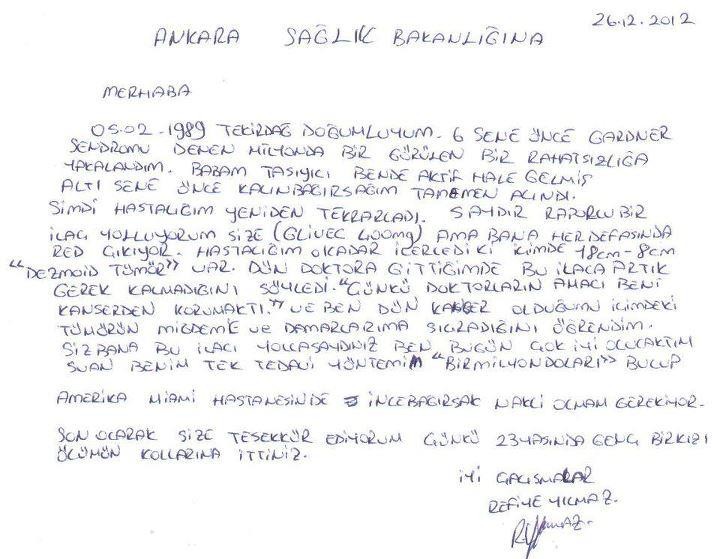 26.12.2012
ANKARA SAĞLIK BAKANLIĞINA
MERHABA
05.02.1989 TEKİRDAĞ DOĞUMLUYUM. 6 SENE ÖNCE GARDNER
SENDROMU DENEN MİLYONDA BİR GÖRÜLEN BİR RAHATSIZLIĞA
YAKALANDIM. BABAM TASIYICI BENDE AKTİF HALE GELMİŞ
ALTI SENE ÖNCE KALINBAĞIRSAĞIM TAMEMEN ALINDI.
SİMDİ HASTALIĞIM YENİDEN TEKRARLADI. SAYDIR RAPORLU BİR
İLACI YOLLUYORUM SİZE (GLİVEC 400mg) AMA BANA HERDEFASINDA
RED ÇIKIYOR. HASTALIĞIM OKADAR İCERLEDİ Kİ İCİMDE 18cm-8cm
"DEZMOİD TÜMÖR" VAR. DÜN DOKTORA GİTTİĞİMDE BU İLACA ARTIK
GEREK KALMADIĞINI SÖYLEDİ. "ÇÜNKÜ DOKTORLARIN AMACI BENİ
KANSERDEN KORUMAKTI." VE BEN DÜN KANSER OLDUĞUMU İCİMDEKİ
TÜMÖRÜN MİĞDEME VE DAMARLARIMA SICRADIĞINI ÖĞRENDİM.
SİZ BANA BU İLACI YOLLASAYDINIZ BEN BUGÜN ÇOK İYİ OLUCAKTIM
SUAN BENİM TEK TEDAVİ YÖNTEMİM "BİRMİLYONDOLARI" BULUP
AMERİKA MİAMİ HASTANESİNDE İNCEBAĞIRSAK NAKLİ OLMAM GEREKİYOR.
SON OLARAK SİZE TESEKKÜR EDİYORUM ÇÜNKÜ 23 YASINDA GENÇ BİR KIZI
ÖLÜMÜN KOLLARINA İTTİNİZ.
İYİ ÇALISMALAR
REFİYE YILMAZ.